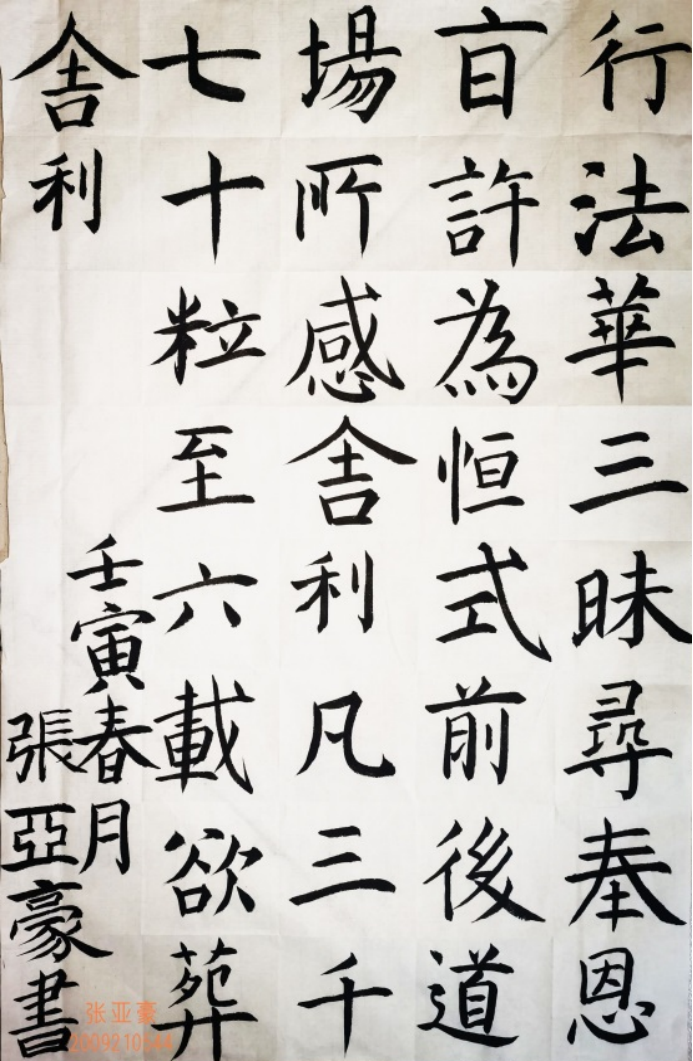 行法華三昧尋奉恩
旨許為恒式前後道
場所感舍利凡三千
七十粒至六載欲葬
舍利
壬寅春月
張亞豪書
张亚豪
2009210544